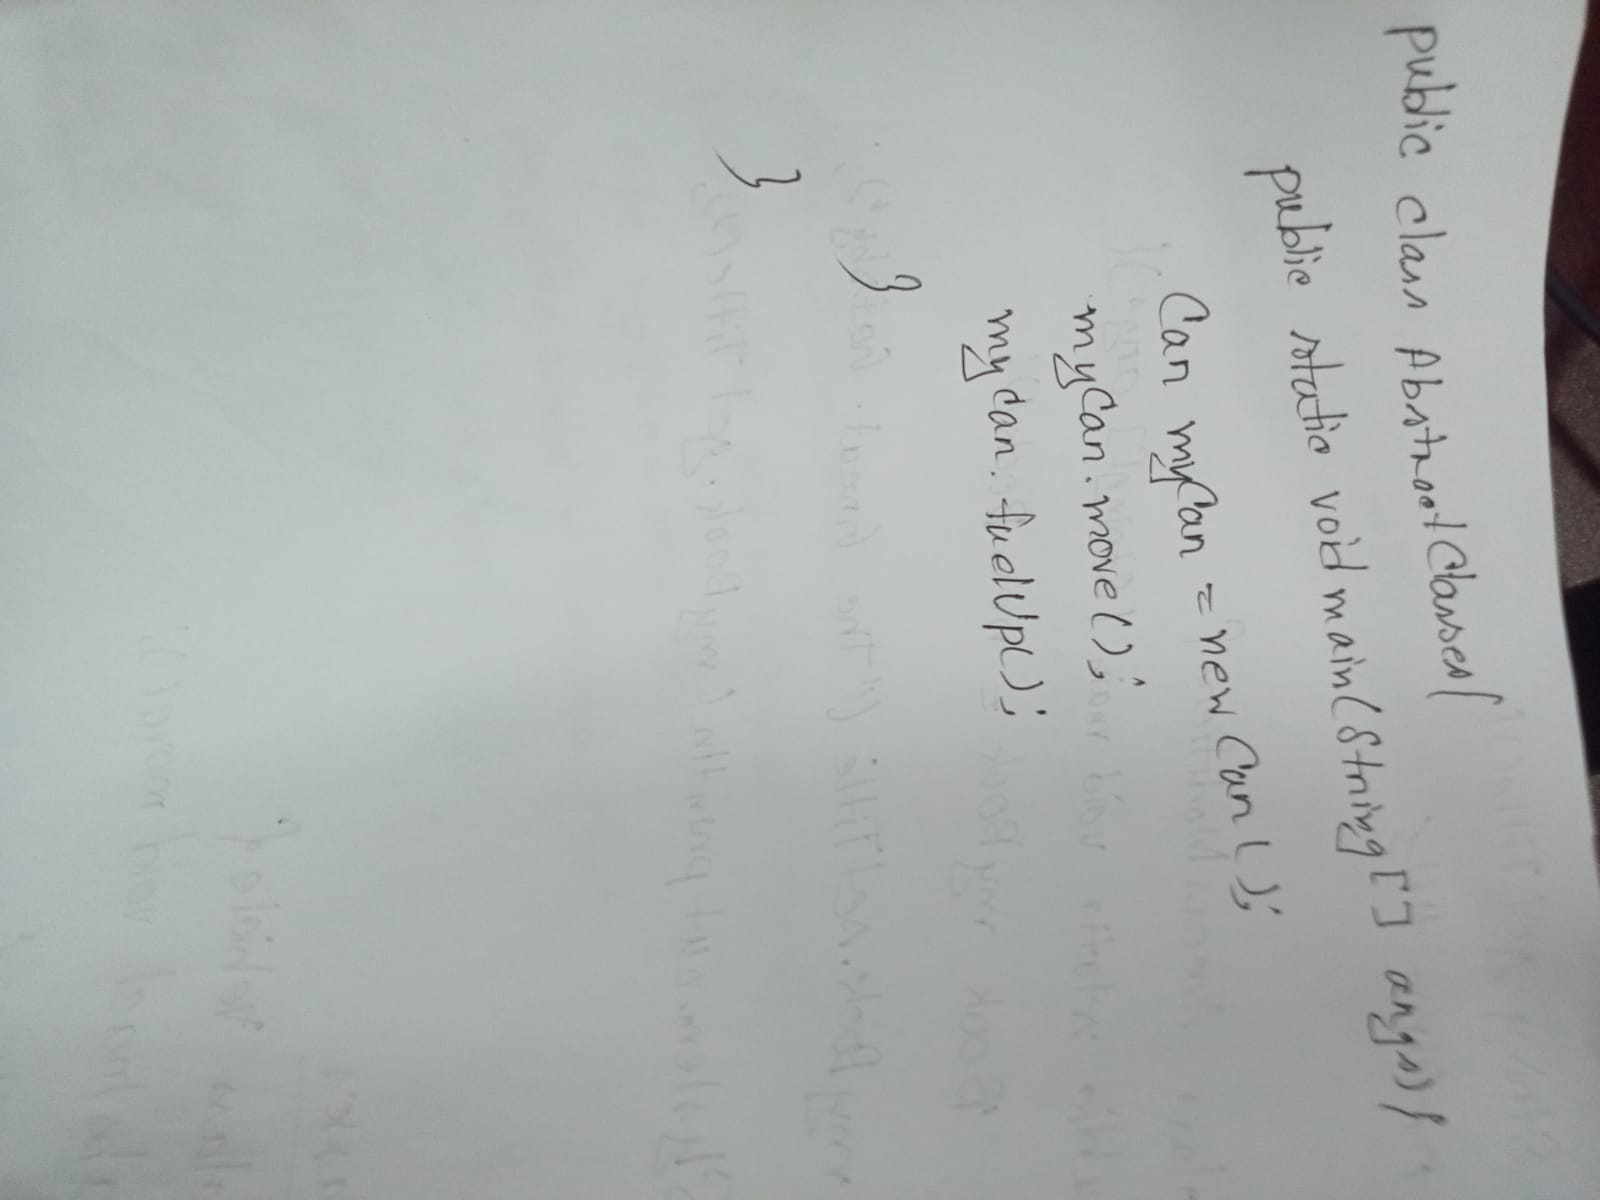 public class AbstractClasses{
public static void main(String[] args){
Car myCar = new Car();
myCar.move();
myCar.fuelUp();
}
}